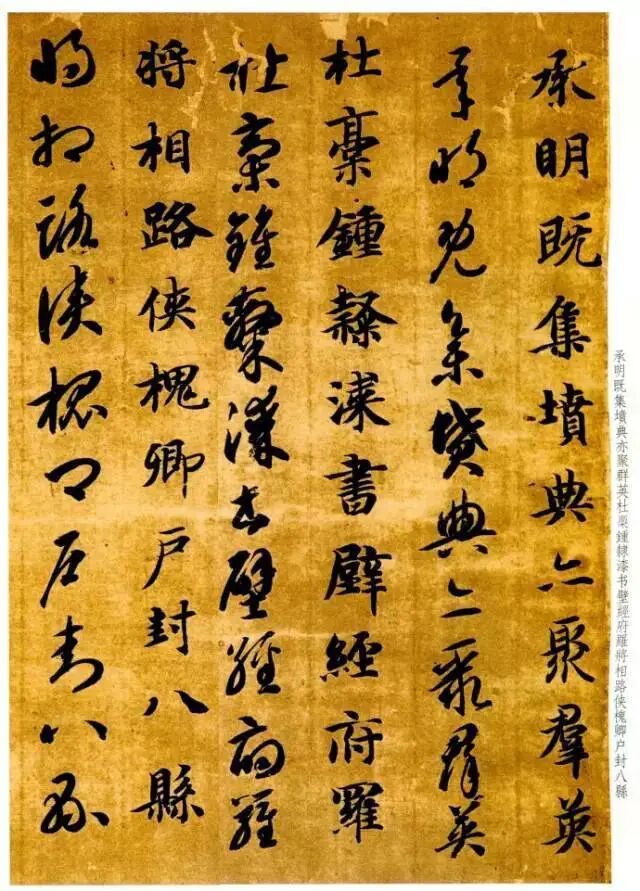 承明既集墳典亦聚羣英
承明既集墳典亦聚群英
杜稾鍾隸漆書壁經府羅
杜稾鍾隸漆書壁經府羅
將相路俠槐卿戶封八縣
將相路俠槐卿戶封八縣
承明既集墳典亦聚群英杜稾鍾隸漆书壁經府羅將相路俠槐卿户封八縣